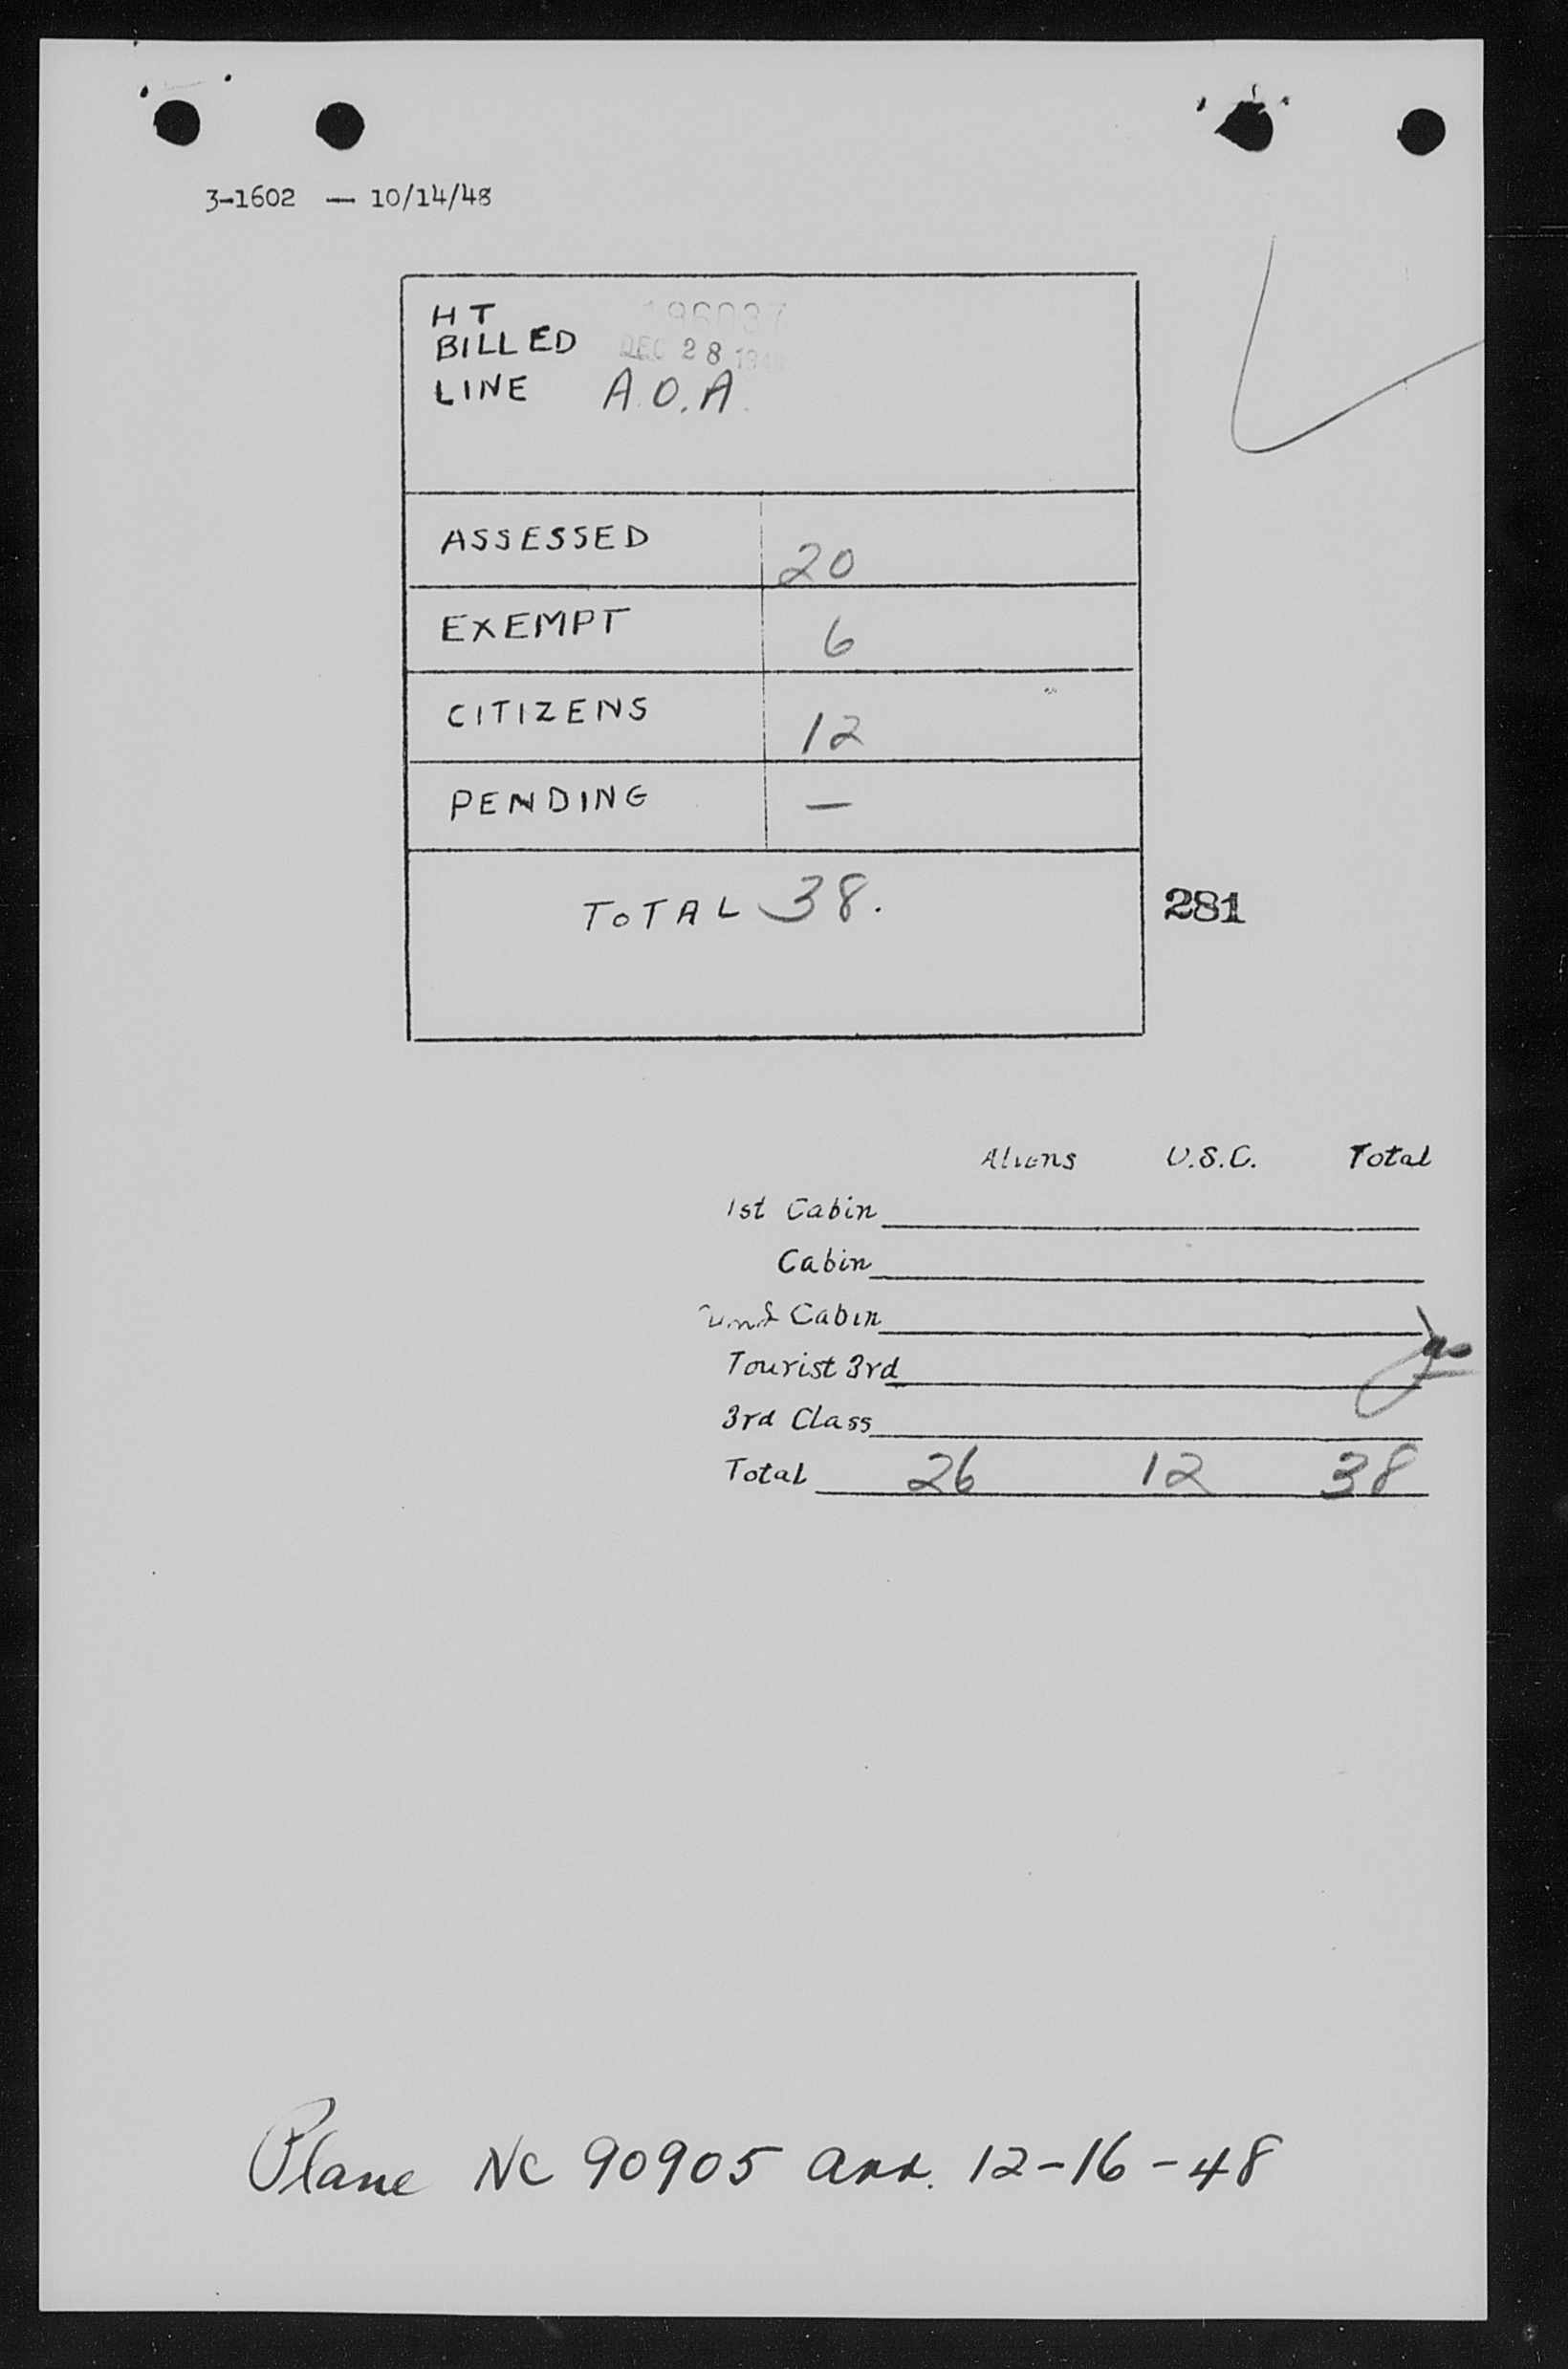 3-1602 — 10/14/48
HT
BILLED DEC 28
LINE A.O.A.
ASSESSED 20
EXEMPT 6
CITIZENS 12
PENDING —
TOTAL 38.
281
Aliens U.S.C. Total
1st Cabin
Cabin
Cabin
Tourist 3rd
3rd Class
Total 26 12 38
Plane NC 90905 arr. 12-16-48